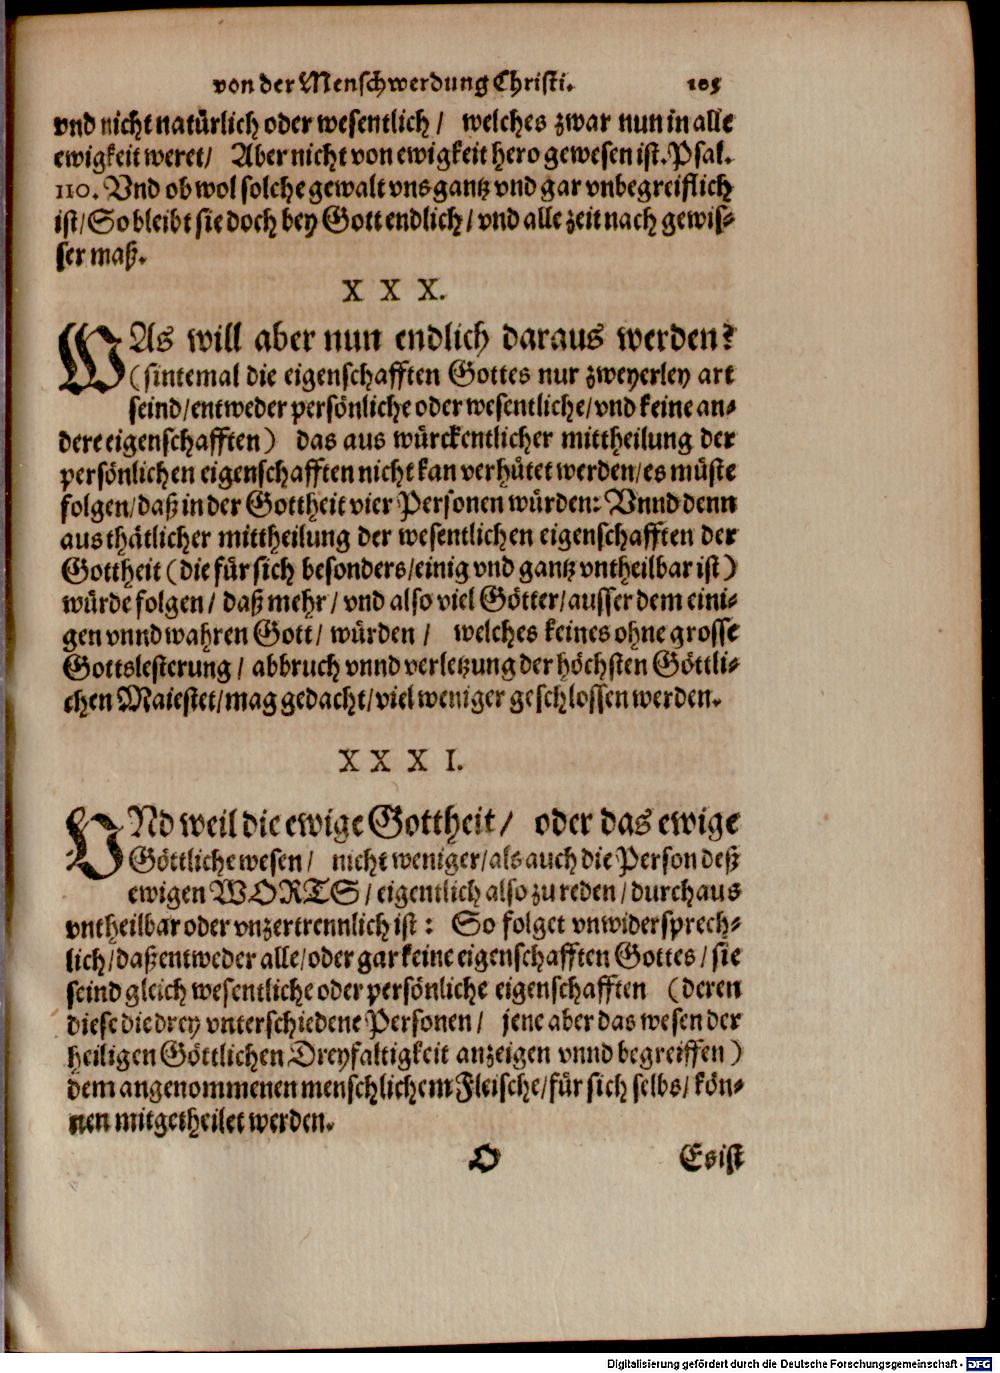 von der Menschwerdung Christi. 105
vnd nicht natürlich oder wesentlich / welches zwar nun in alle
ewigkeit weret / Aber nicht von ewigkeit hero gewesen ist. Psal.
110. Vnd ob wol solche gewalt vns gantz vnd gar vnbegreiflich
ist / So bleibt sie doch bey Gott endlich / vnd alle zeit nach gewis-
ser maß.
X X X.
WAs will aber nun endlich daraus werden?
(sintemal die eigenschafften Gottes nur zweyerley art
seind / entweder persönliche oder wesentliche / vnd keine an-
dere eigenschafften) das aus würckentlicher mittheilung der
persönlichen eigenschafften nicht kan verhütet werden / es müste
folgen / daß in der Gottheit vier Personen würden: Vnnd denn
aus thätlicher mittheilung der wesentlichen eigenschafften der
Gottheit (die für sich besonders / einig vnd gantz vntheilbar ist)
würde folgen / daß mehr / vnd also viel Götter / ausser dem eini-
gen vnnd wahren Gott / würden / welches keines ohne grosse
Gottslesterung / abbruch vnnd verletzung der höchsten Göttli-
chen Maiestet / mag gedacht / viel weniger geschlossen werden.
X X X I.
VNd weil die ewige Gottheit / oder das ewige
Göttliche wesen / nicht weniger / als auch die Person deß
ewigen WORTS / eigentlich also zu reden / durchaus
vntheilbar oder vnzertrennlich ist: So folget vnwidersprech-
lich / daß entweder alle / oder gar keine eigenschafften Gottes / sie
seind gleich wesentliche oder persönliche eigenschafften (deren
diese die drey vnterschiedene Personen / jene aber das wesen der
heiligen Göttlichen Dreyfaltigkeit anzeigen vnnd begreiffen)
dem angenommenen menschlichem Fleische / für sich selbs / kön-
nen mitgetheilet werden.
O Es ist
Digitalisierung gefördert durch die Deutsche Forschungsgemeinschaft - DFG